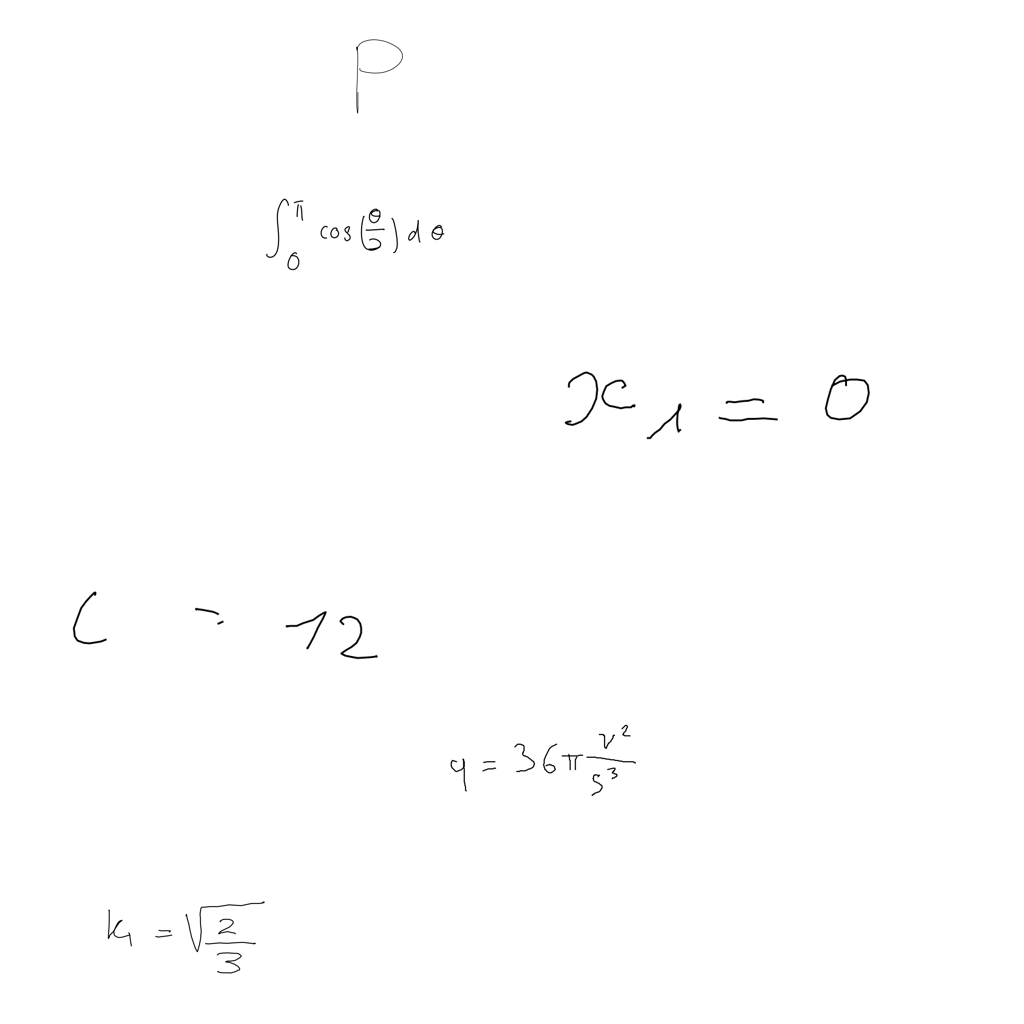 P
∫₀^π cos(θ/2) dθ
x₁ = 0
C = 12
q = 36π v²/s³
k₁ = √(2/3)